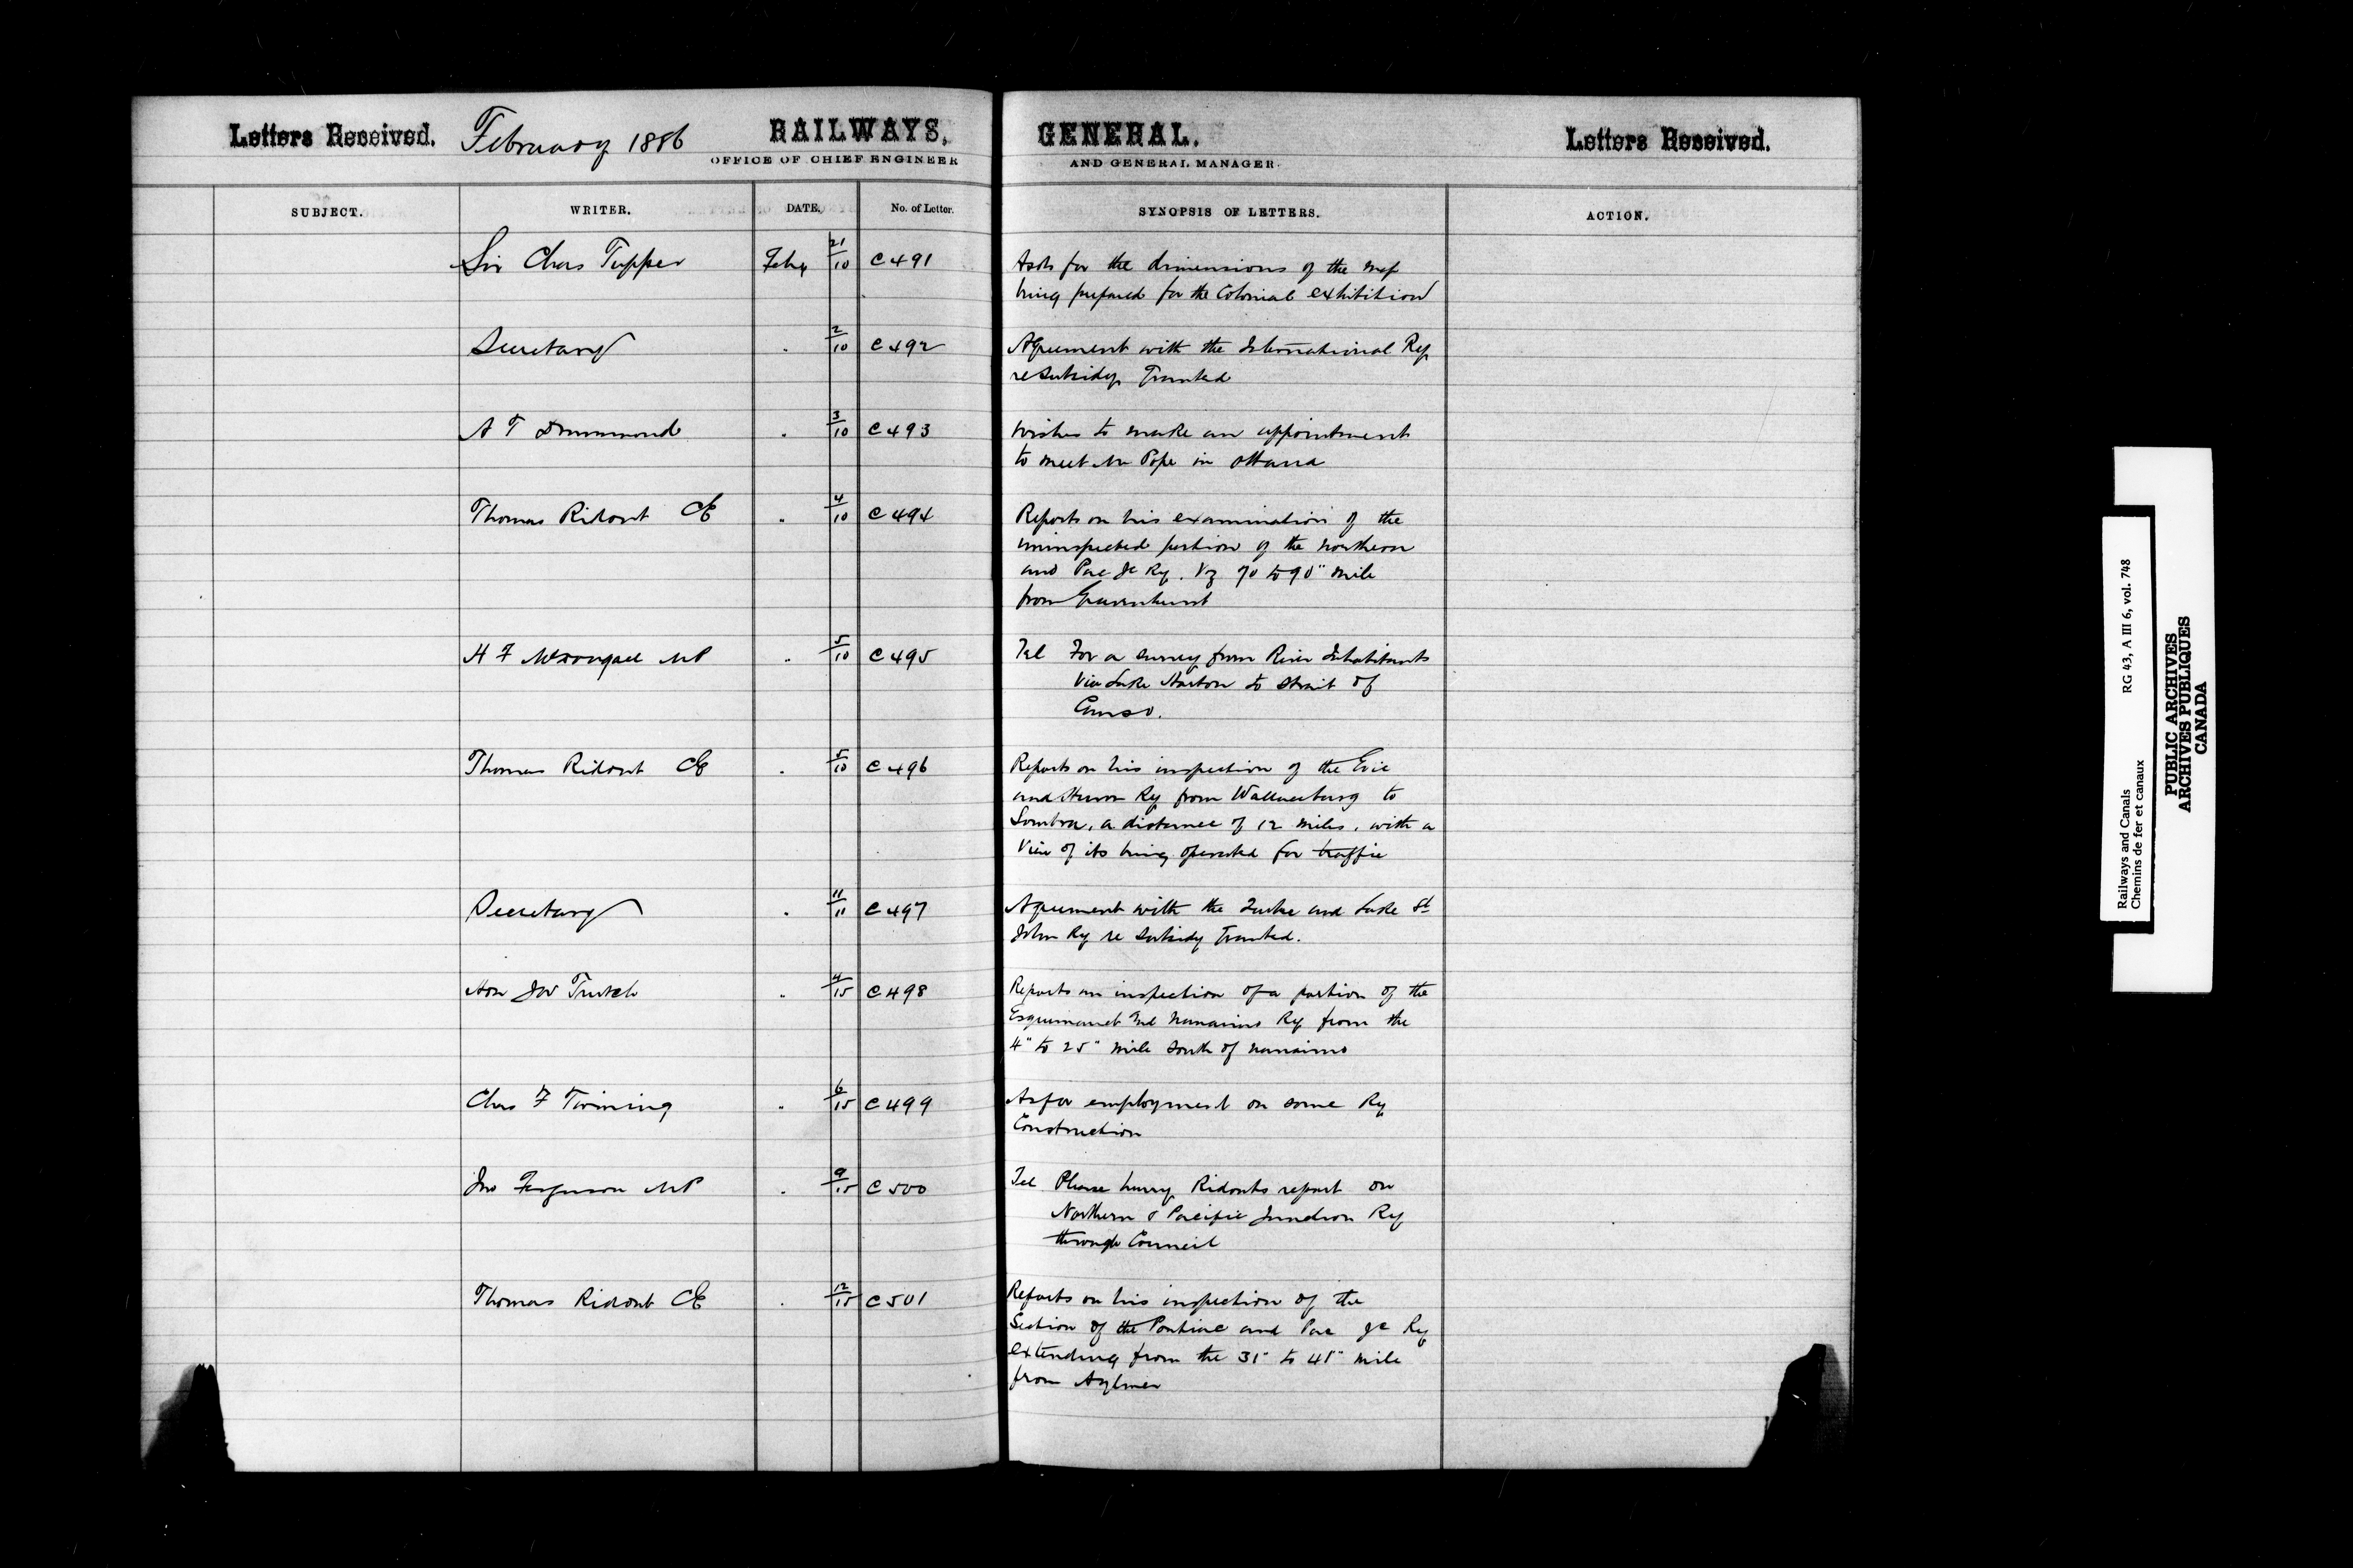 Letters Received. February 1886 RAILWAYS, GENERAL. Letters Received.
OFFICE OF CHIEF ENGINEER AND GENERAL MANAGER.
SUBJECT. WRITER. DATE, No. of Letter. SYNOPSIS OF LETTERS. ACTION.
Sir Chas Tupper Feby 21/10 C491 Asks for the dimensions of the map
being prepared for the Colonial exhibition
Secretary " 2/10 C492 Agreement with the International Ry
re Subsidy Granted
A T Drummond " 3/10 C493 Wishes to make an appointment
to meet Mr Pope in Ottawa
Thomas Ridout CE " 4/10 C494 Reports on his examination of the
uninspected portion of the Northern
and Pac Jc Ry. Vz 70 to 90" mile
from Gravenhurst
H F McDougall MP " 5/10 C495 Tel For a survey from River Inhabitants
Via Lake Horton to Strait of
Canso.
Thomas Ridout CE " 5/10 C496 Reports on his inspection of the Erie
and Huron Ry from Wallaceburg to
Sombra, a distance of 12 miles, with a
View of its being operated for traffic
Secretary " 11/11 C497 Agreement with the Quebec and Lake St
John Ry re Subsidy Granted.
Hon Jos Trutch " 4/15 C498 Reports on inspection of a portion of the
Esquimault and Nanaimo Ry from the
4" to 25" mile South of Nanaimo
Chas F Twining " 6/15 C499 As for employment on some Ry
Construction
Jno Ferguson MP " 9/15 C500 Tel Please hurry Ridouts report on
Northern & Pacific Junction Ry
through Council
Thomas Ridout CE " 12/15 C501 Reports on his inspection of the
Section of the Pontiac and Pac Jc Ry
extending from the 31" to 41" mile
from Aylmer
Railways and Canals RG 43, A III 6, vol. 748
Chemins de fer et canaux
PUBLIC ARCHIVES
ARCHIVES PUBLIQUES
CANADA